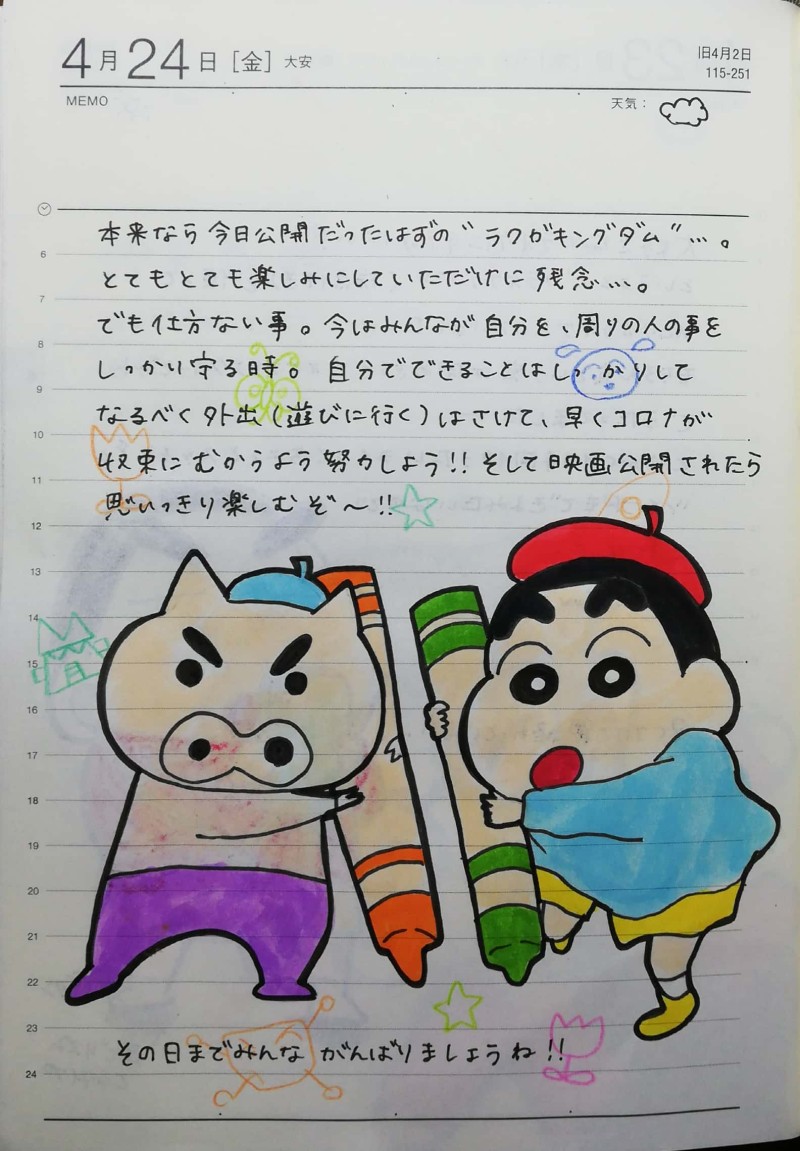 4月24日[金] 大安
旧4月2日
115-251
MEMO
天気：
本来なら今日公開だったはずの"ラクガキングダム"…。
とてもとても楽しみにしていただけに残念…。
でも仕方ない事。今はみんなが自分を、周りの人の事を
しっかり守る時。自分でできることはしっかりして
なるべく外出(遊びに行く)はさけて、早くコロナが
収束にむかうよう努力しよう!!そして映画公開されたら
思いっきり楽しむぞ〜!!
6
7
8
9
10
11
12
13
14
15
16
17
18
19
20
21
22
23
24
その日までみんながんばりましょうね!!